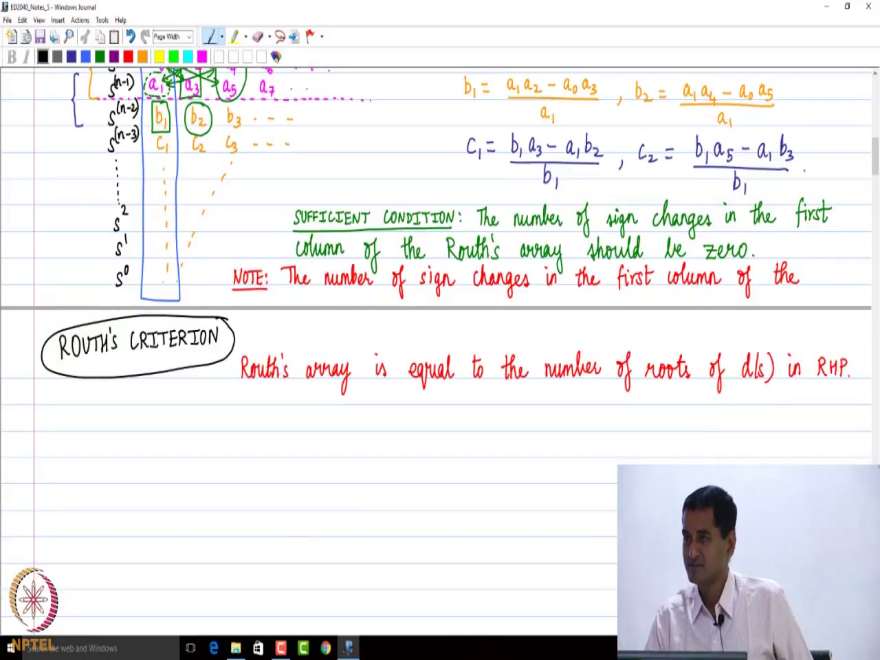 ED2040_Notes_5 - Windows Journal
File Edit View Insert Actions Tools Help
Page Width
B I
s^(n-1) a₁ a₃ a₅ a₇ . . .
s^(n-2) b₁ b₂ b₃ . . - - -
s^(n-3) c₁ c₂ c₃ - - -
s²
s¹
s⁰
b₁ = (a₁a₂ - a₀a₃)/a₁ , b₂ = (a₁a₄ - a₀a₅)/a₁
c₁ = (b₁a₃ - a₁b₂)/b₁ , c₂ = (b₁a₅ - a₁b₃)/b₁ .
SUFFICIENT CONDITION: The number of sign changes in the first
column of the Routh's array should be zero.
NOTE: The number of sign changes in the first column of the
ROUTH'S CRITERION
Routh's array is equal to the number of roots of d(s) in RHP.
NPTEL
the web and Windows